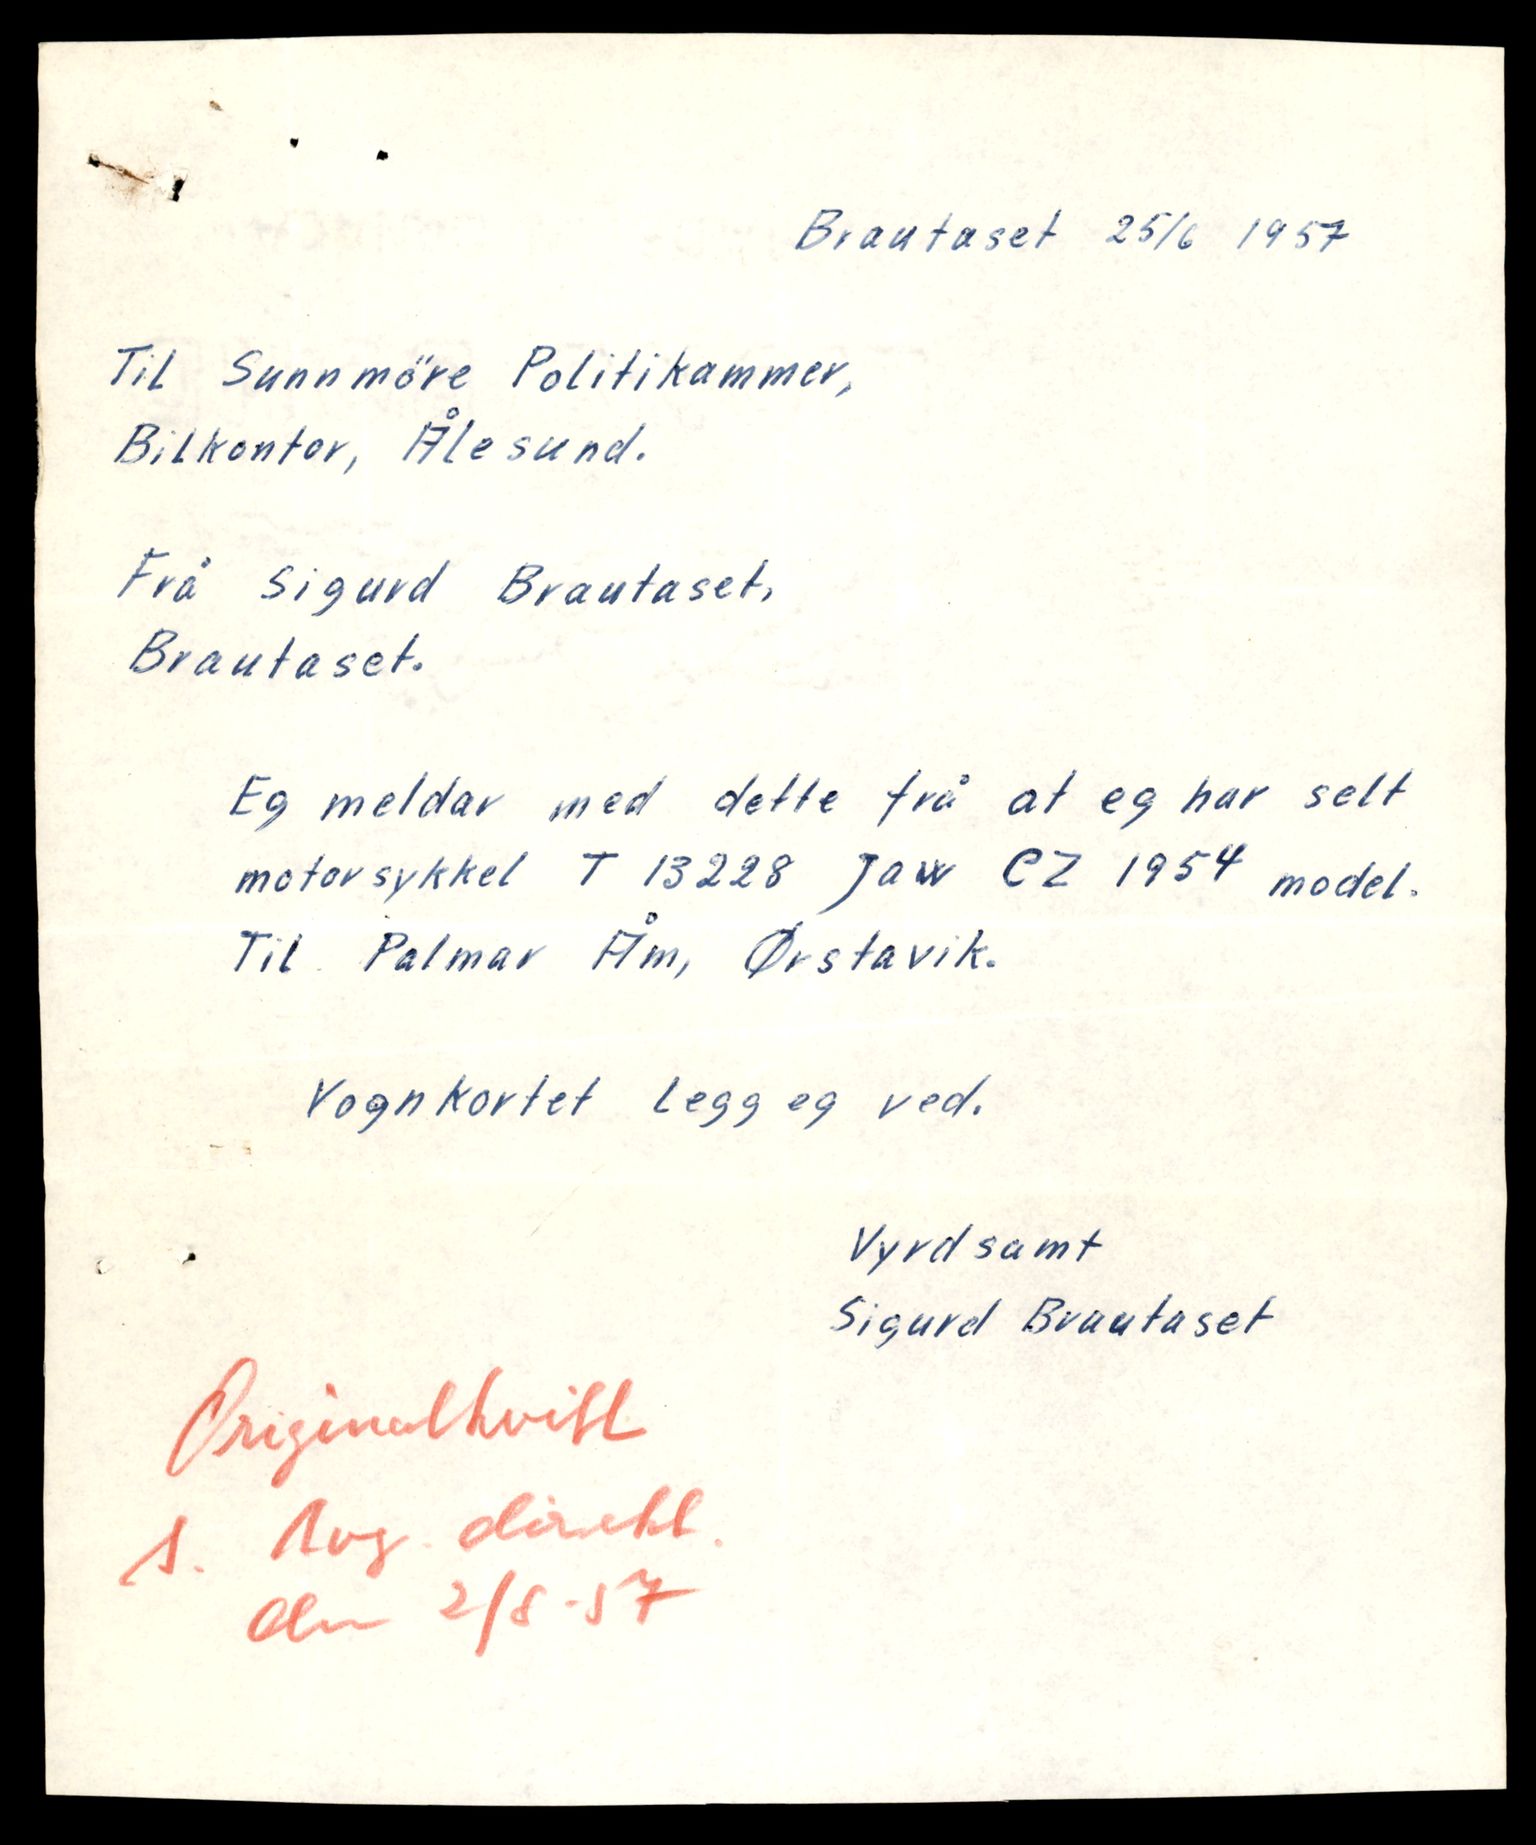 Brautaset 25/6 1957
Til Sunnmöre Politikammer,
Bilkontor, Ålesund.
Frå Sigurd Brautaset,
Brautaset.
Eg meldar med dette frå at eg har selt
motorsykkel T 13228 Jaw CZ 1954 model.
Til Palmar Åm, Ørstavik.
Vognkortet legg eg ved.
Vyrdsamt
Sigurd Brautaset
Originalkvitt
s. direkt.
den 2/8-57